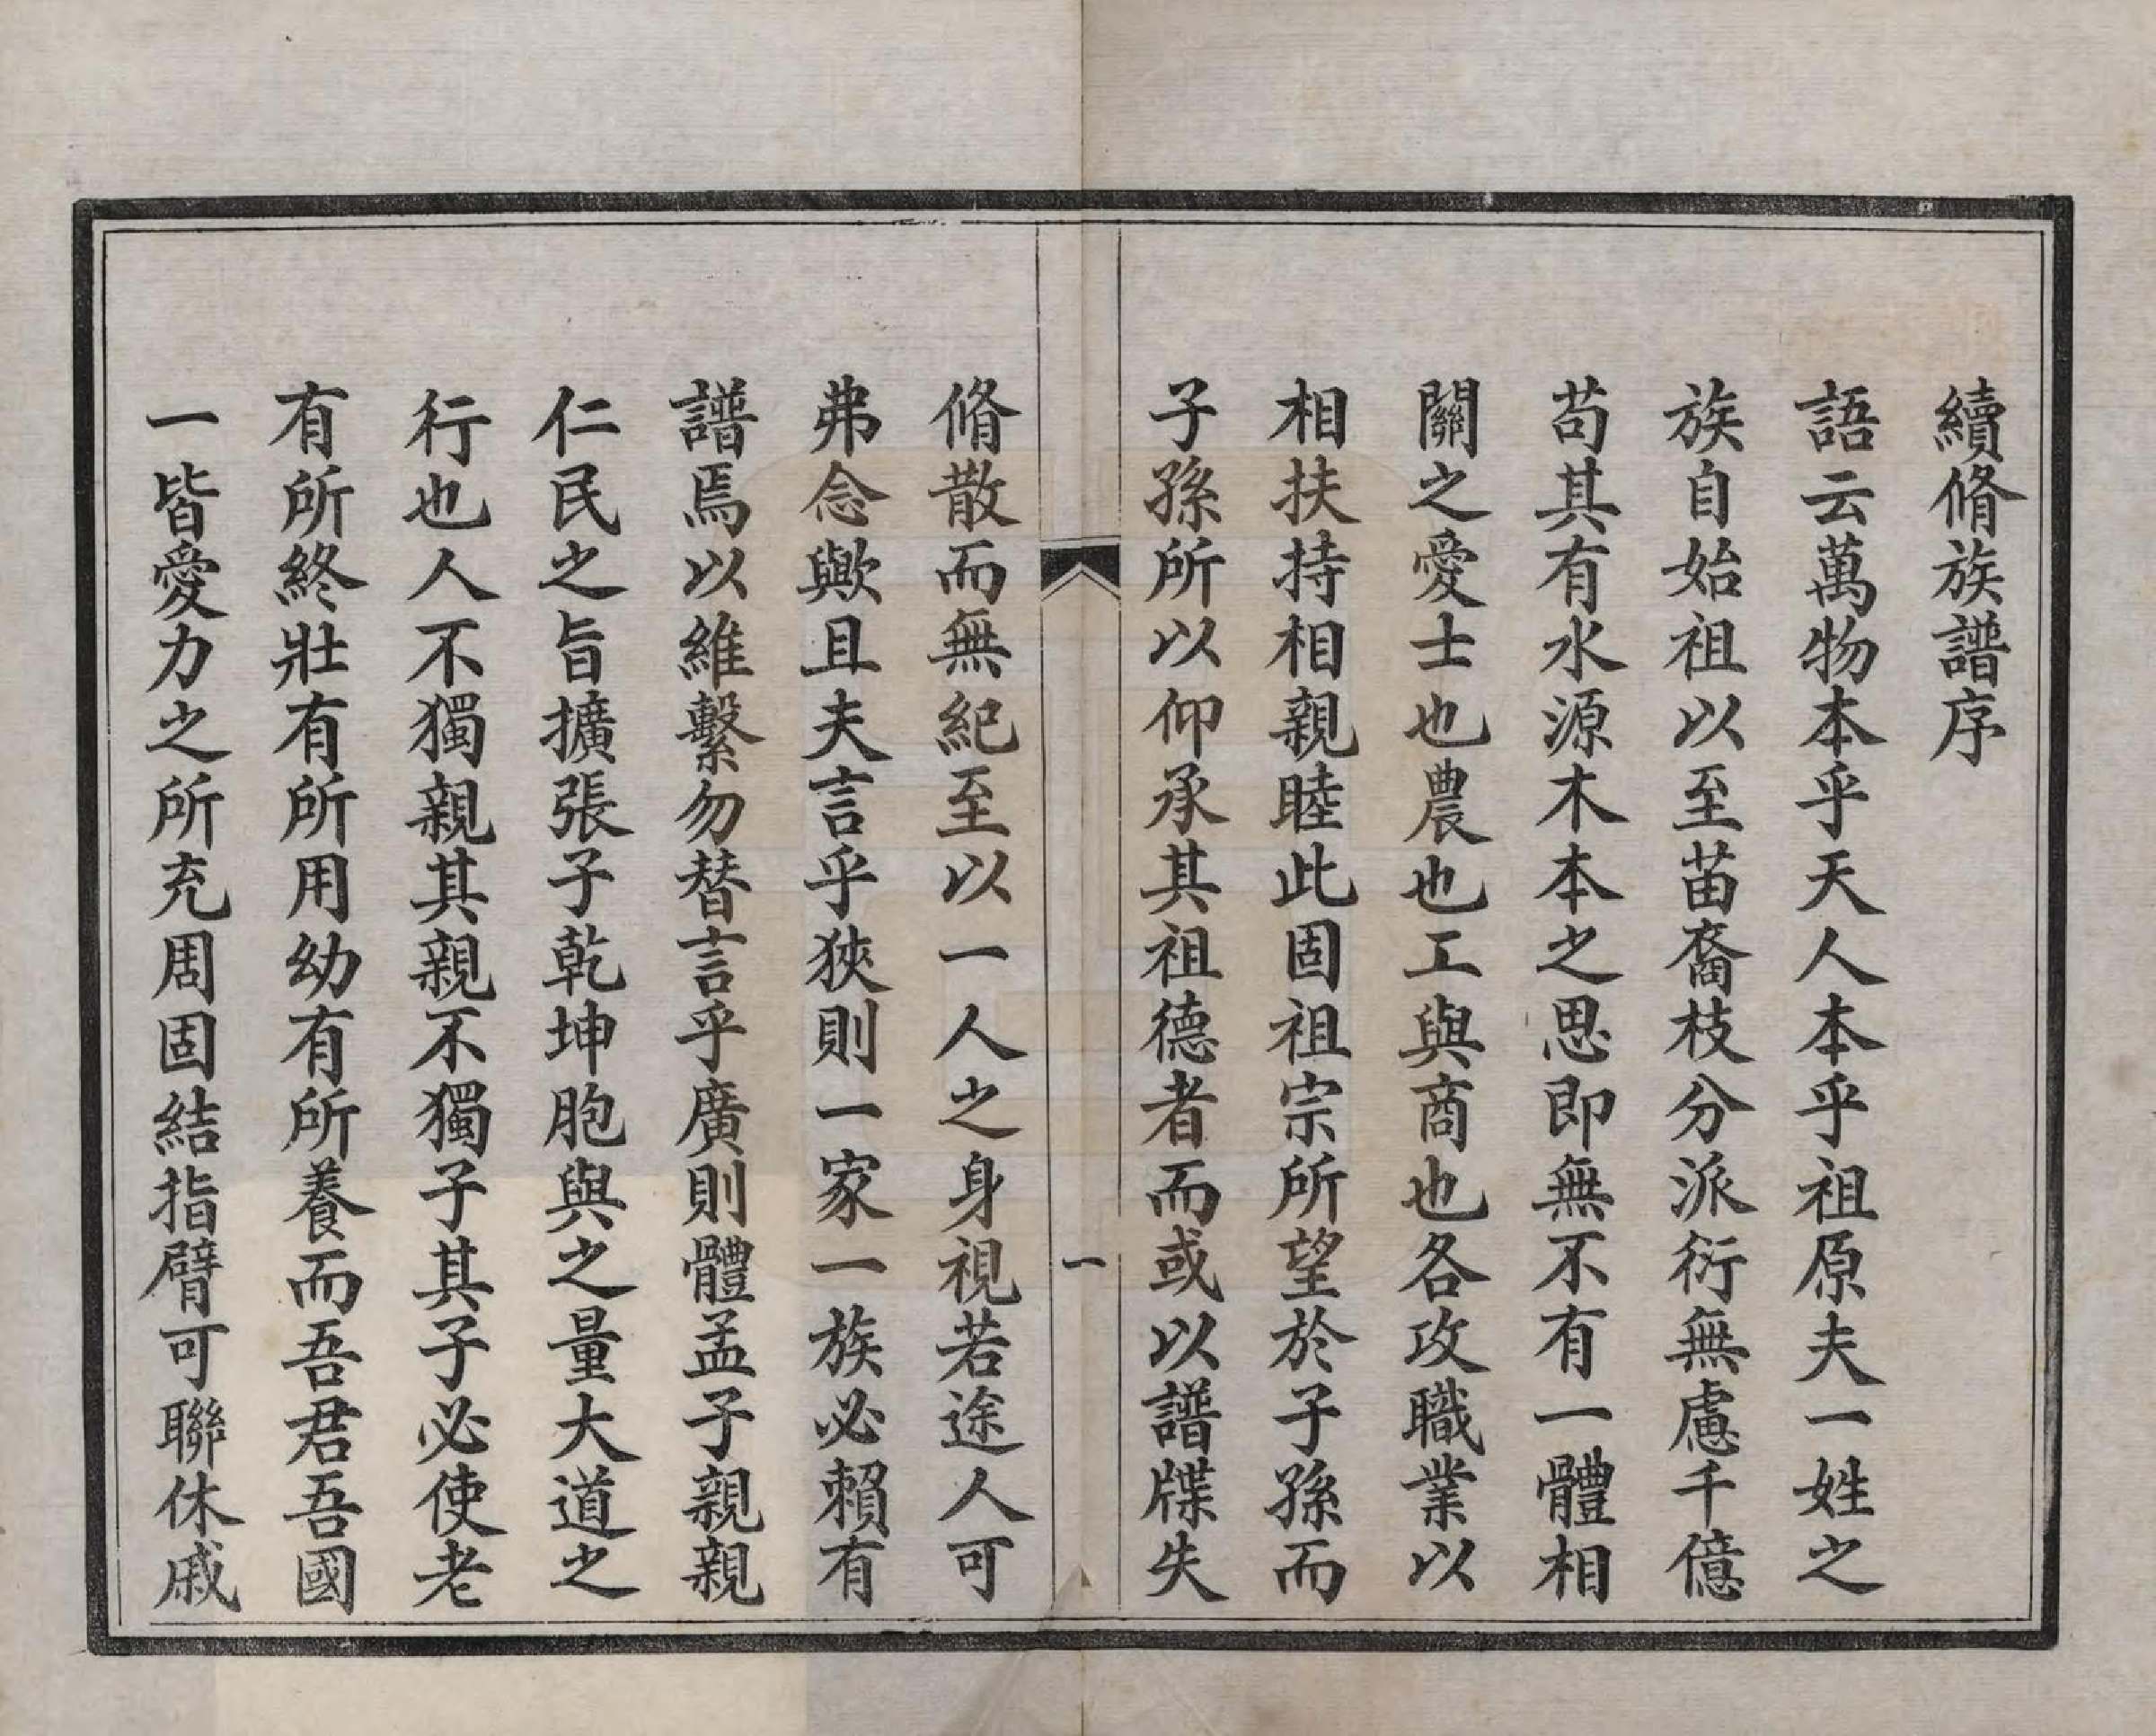 續脩族譜序
語云萬物本乎天人本乎祖原夫一姓之
族自始祖以至苗裔枝分派衍無慮千億
苟其有水源木本之思即無不有一體相
關之愛士也農也工與商也各攻職業以
相扶持相親睦此固祖宗所望於子孫而
子孫所以仰承其祖德者而或以譜牒失
一
脩散而無紀至以一人之身視若途人可
弗念歟且夫言乎狹則一家一族必賴有
譜焉以維繫勿替言乎廣則體孟子親親
仁民之旨擴張子乾坤胞與之量大道之
行也人不獨親其親不獨子其子必使老
有所終壯有所用幼有所養而吾君吾國
一皆愛力之所充周固結指臂可聯休戚